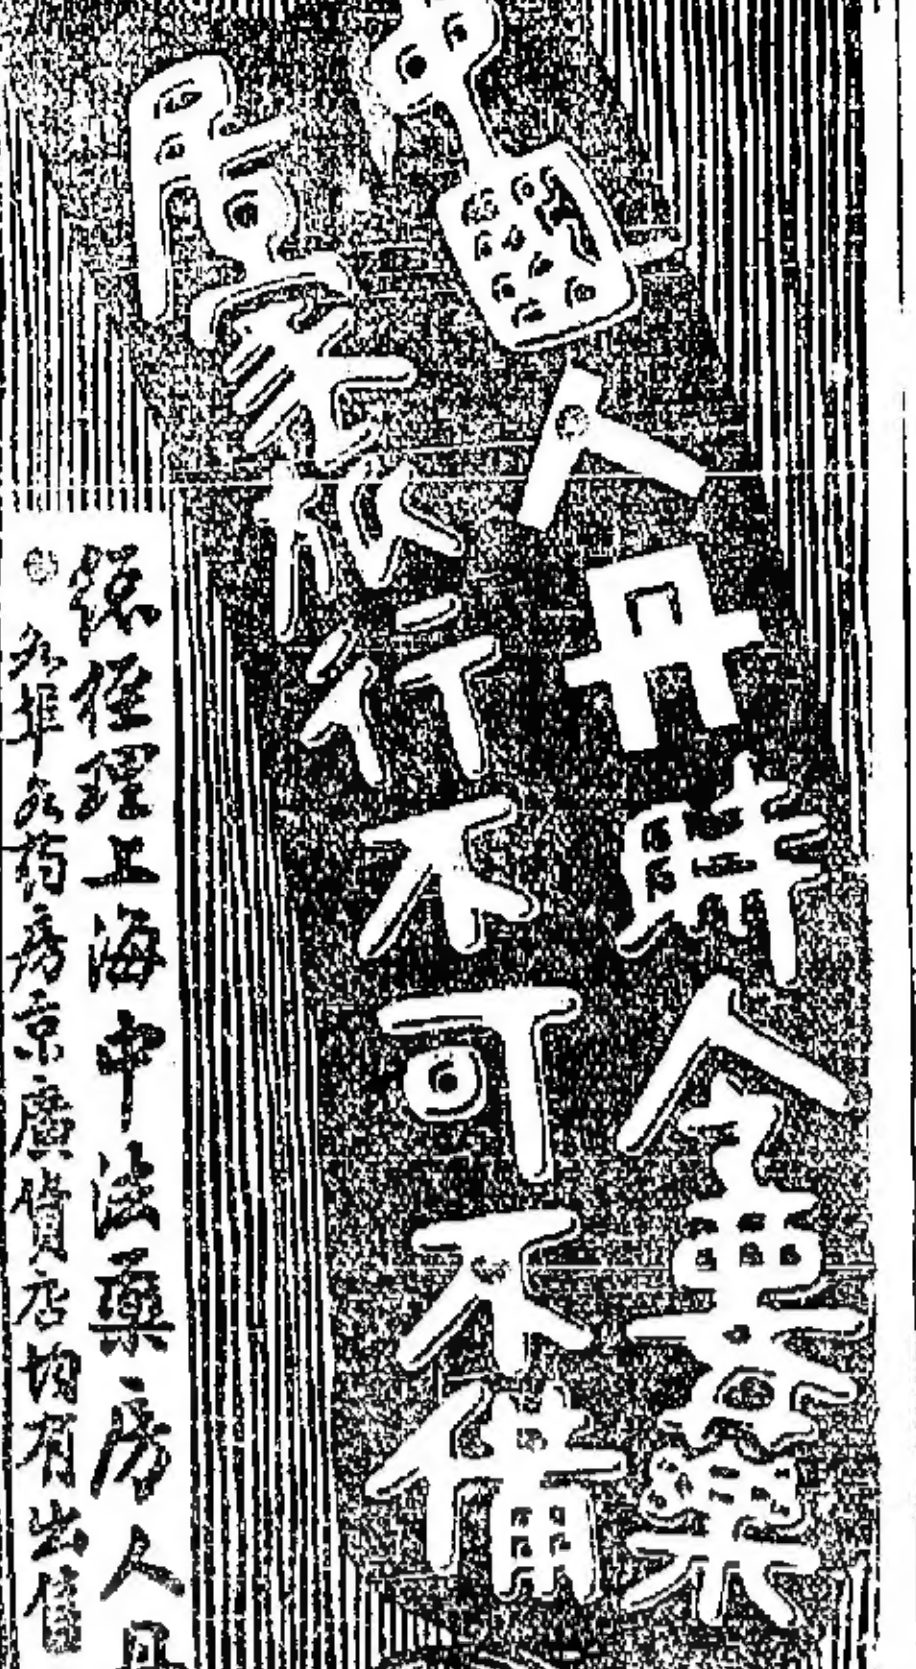 中國人丹時令要藥
居家旅行不可不備
總經理上海中法藥房人丹
各埠各药房京廣貨店均有出售